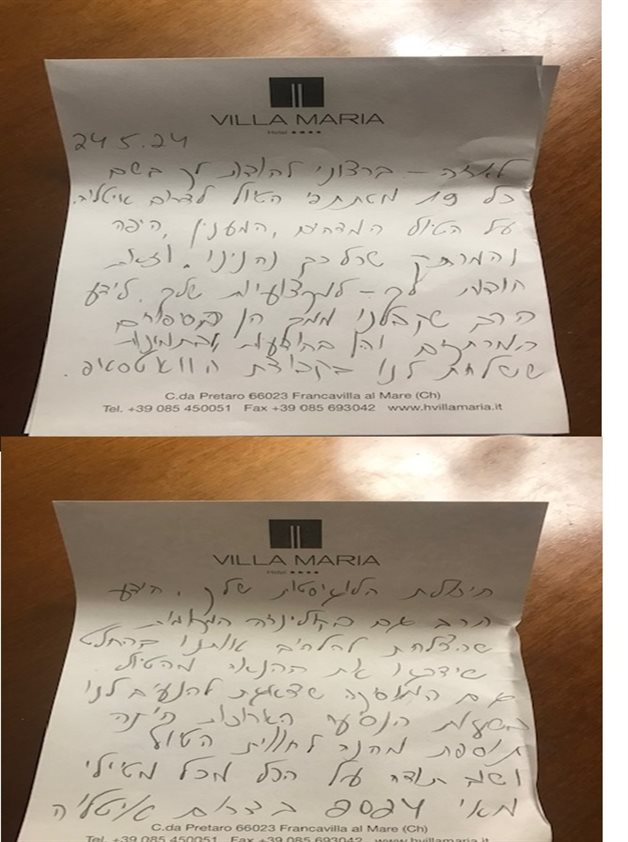 VILLA MARIA
Hotel ★★★★
24.5.24
ברצוני להודות לך בשם
כל 19 משתתפי הטיול לדרום איטליה.
על הטיול המדהים, המענין, היפה
והמרתק שכל כך נהנינו. וזאת
תודות לך – למקצועיות שלך. לידע
הרב שקבלנו ממך הן בסיפורים
המרתקים והן בהודעות ובתמונות
ששלחת לנו בקבוצת הוואטסאפ.
C.da Pretaro 66023 Francavilla al Mare (Ch)
Tel. +39 085 450051 Fax +39 085 693042 www.hvillamaria.it
VILLA MARIA
Hotel ★★★★
היכולת הלוגיסטית שלך, הידע
הרב גם בקולינריה המקומית
שהצלחת להלהיב אותנו בהחלט
שידרגו את ההנאה מהטיול
גם המוסיקה שדאגת להנעים לנו
בשעות הנסיעה הארוכות היתה
תוספת מהנה לחווית הטיול
ושוב תודה על הכל מכל מטיילי
מאי 2024 בדרום איטליה
C.da Pretaro 66023 Francavilla al Mare (Ch)
Tel. +39 085 450051 Fax +39 085 693042 www.hvillamaria.it